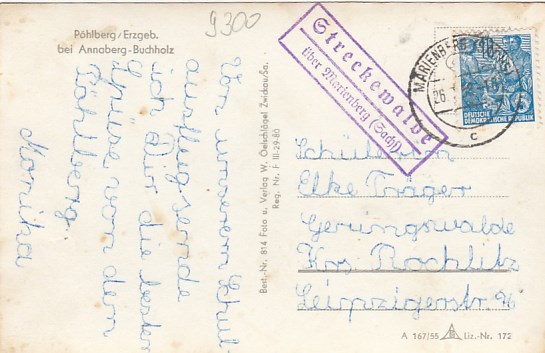 Pöhlberg/Erzgeb.
bei Annaberg-Buchholz
9300
Von unserem Schul-
ausflug sende
ich Dir die besten
Grüße von dem
Pöhlberg.
Monika
Best.-Nr. 814 Foto u. Verlag W. Oehlschlägel Zwickau/Sa.
Reg. Nr. F III-29-86
Streckewalde
über Marienberg (Sachs)
MARIENBERG
26.
c
DEUTSCHE
DEMOKRATISCHE REPUBLIK
Schülerin
Elke Träger
Geringswalde
Krs. Rochlitz
Leipzigerstr. 26
A 167/55 Liz.-Nr. 172